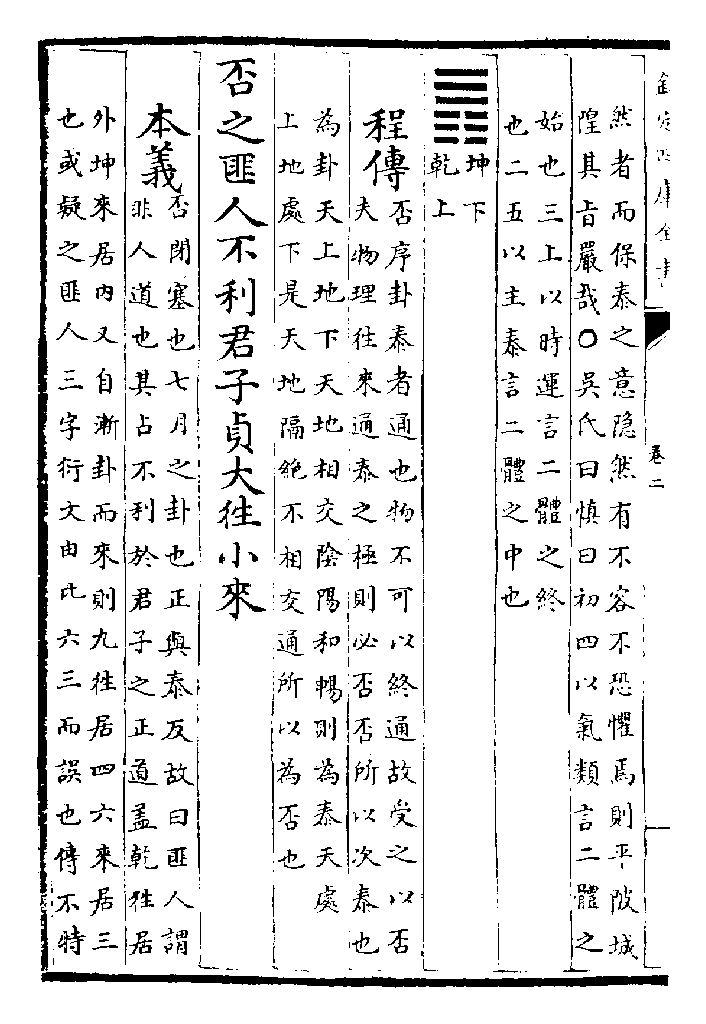 欽定四庫全書
卷二
然者而保泰之意隐然有不容不恐懼焉則平陂城
隍其旨嚴哉○吳氏曰慎曰初四以氣類言二體之
始也三上以時運言二體之終
也二五以主泰言二體之中也
坤下
乾上
程傳否序卦泰者通也物不可以終通故受之以否
夫物理往來通泰之極則必否否所以次泰也
為卦天上地下天地相交陰陽和暢則為泰天處
上地處下是天地隔絶不相交通所以為否也
否之匪人不利君子貞大往小來
本義否閉塞也七月之卦也正與泰反故曰匪人謂
非人道也其占不利於君子之正道盖乾往居
外坤來居内又自漸卦而來則九往居四六來居三
也或疑之匪人三字衍文由比六三而誤也傳不特